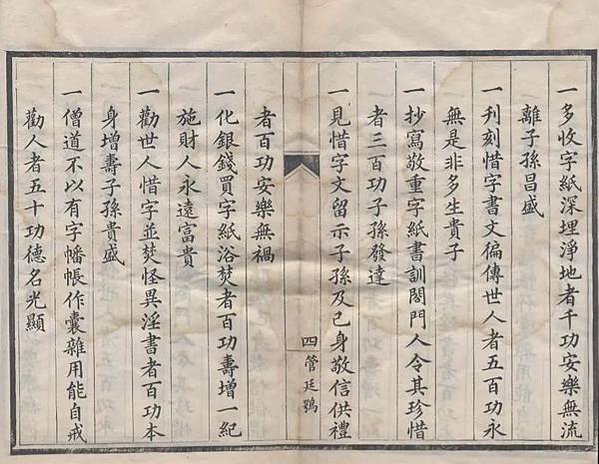 一多收字紙深埋淨地者千功安樂無流
離子孫昌盛
一刊刻惜字書文徧傳世人者五百功永
無是非多生貴子
一抄寫敬重字紙書訓閤門人令其珍惜
者三百功子孫發達
一見惜字文留示子孫及己身敬信供禮
四 管廷鶚
者百功安樂無禍
一化銀錢買字紙浴焚者百功壽增一紀
施財人永遠富貴
一勸世人惜字並焚怪異淫書者百功本
身增壽子孫貴盛
一僧道不以有字幡帳作囊雜用能自戒
勸人者五十功德名光顯